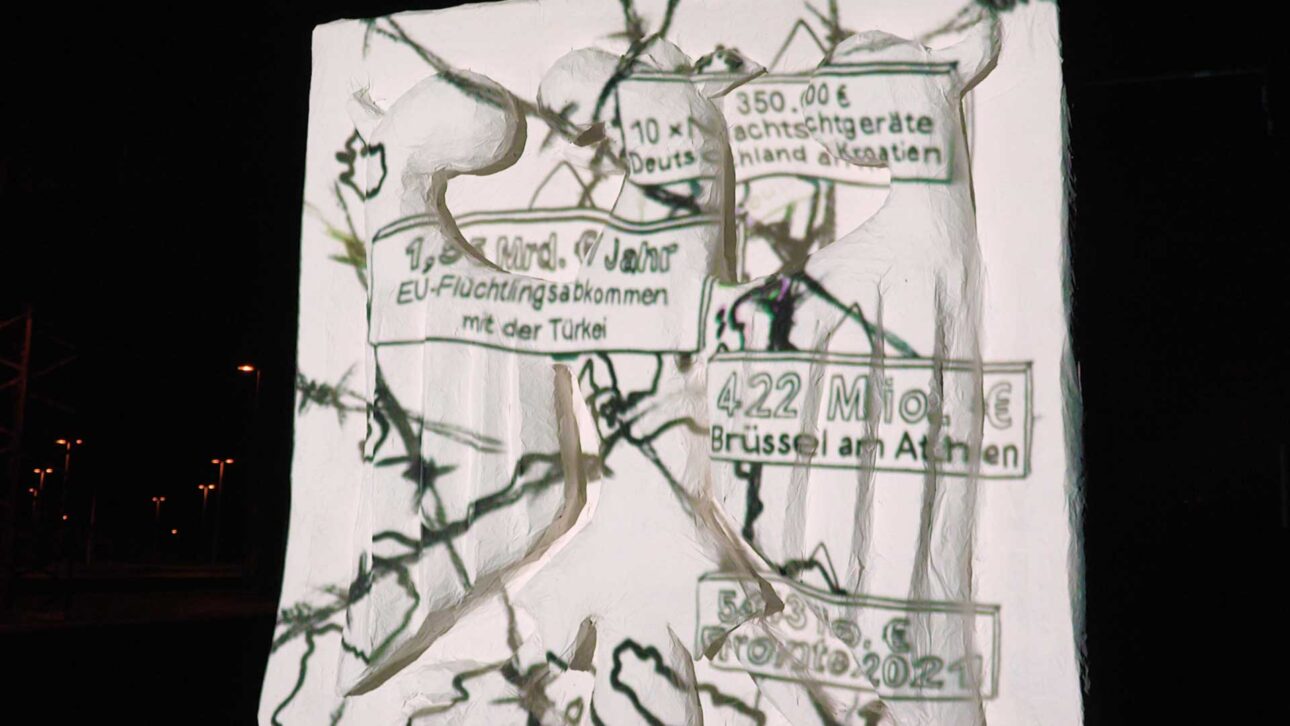 350.00 €
10 x Nachtsichtgeräte
Deutschland an Kroatien
Mrd. €/Jahr
EU-Flüchtlingsabkommen
mit der Türkei
422 Mio. €
Brüssel an Athen
€
Frontex 2021